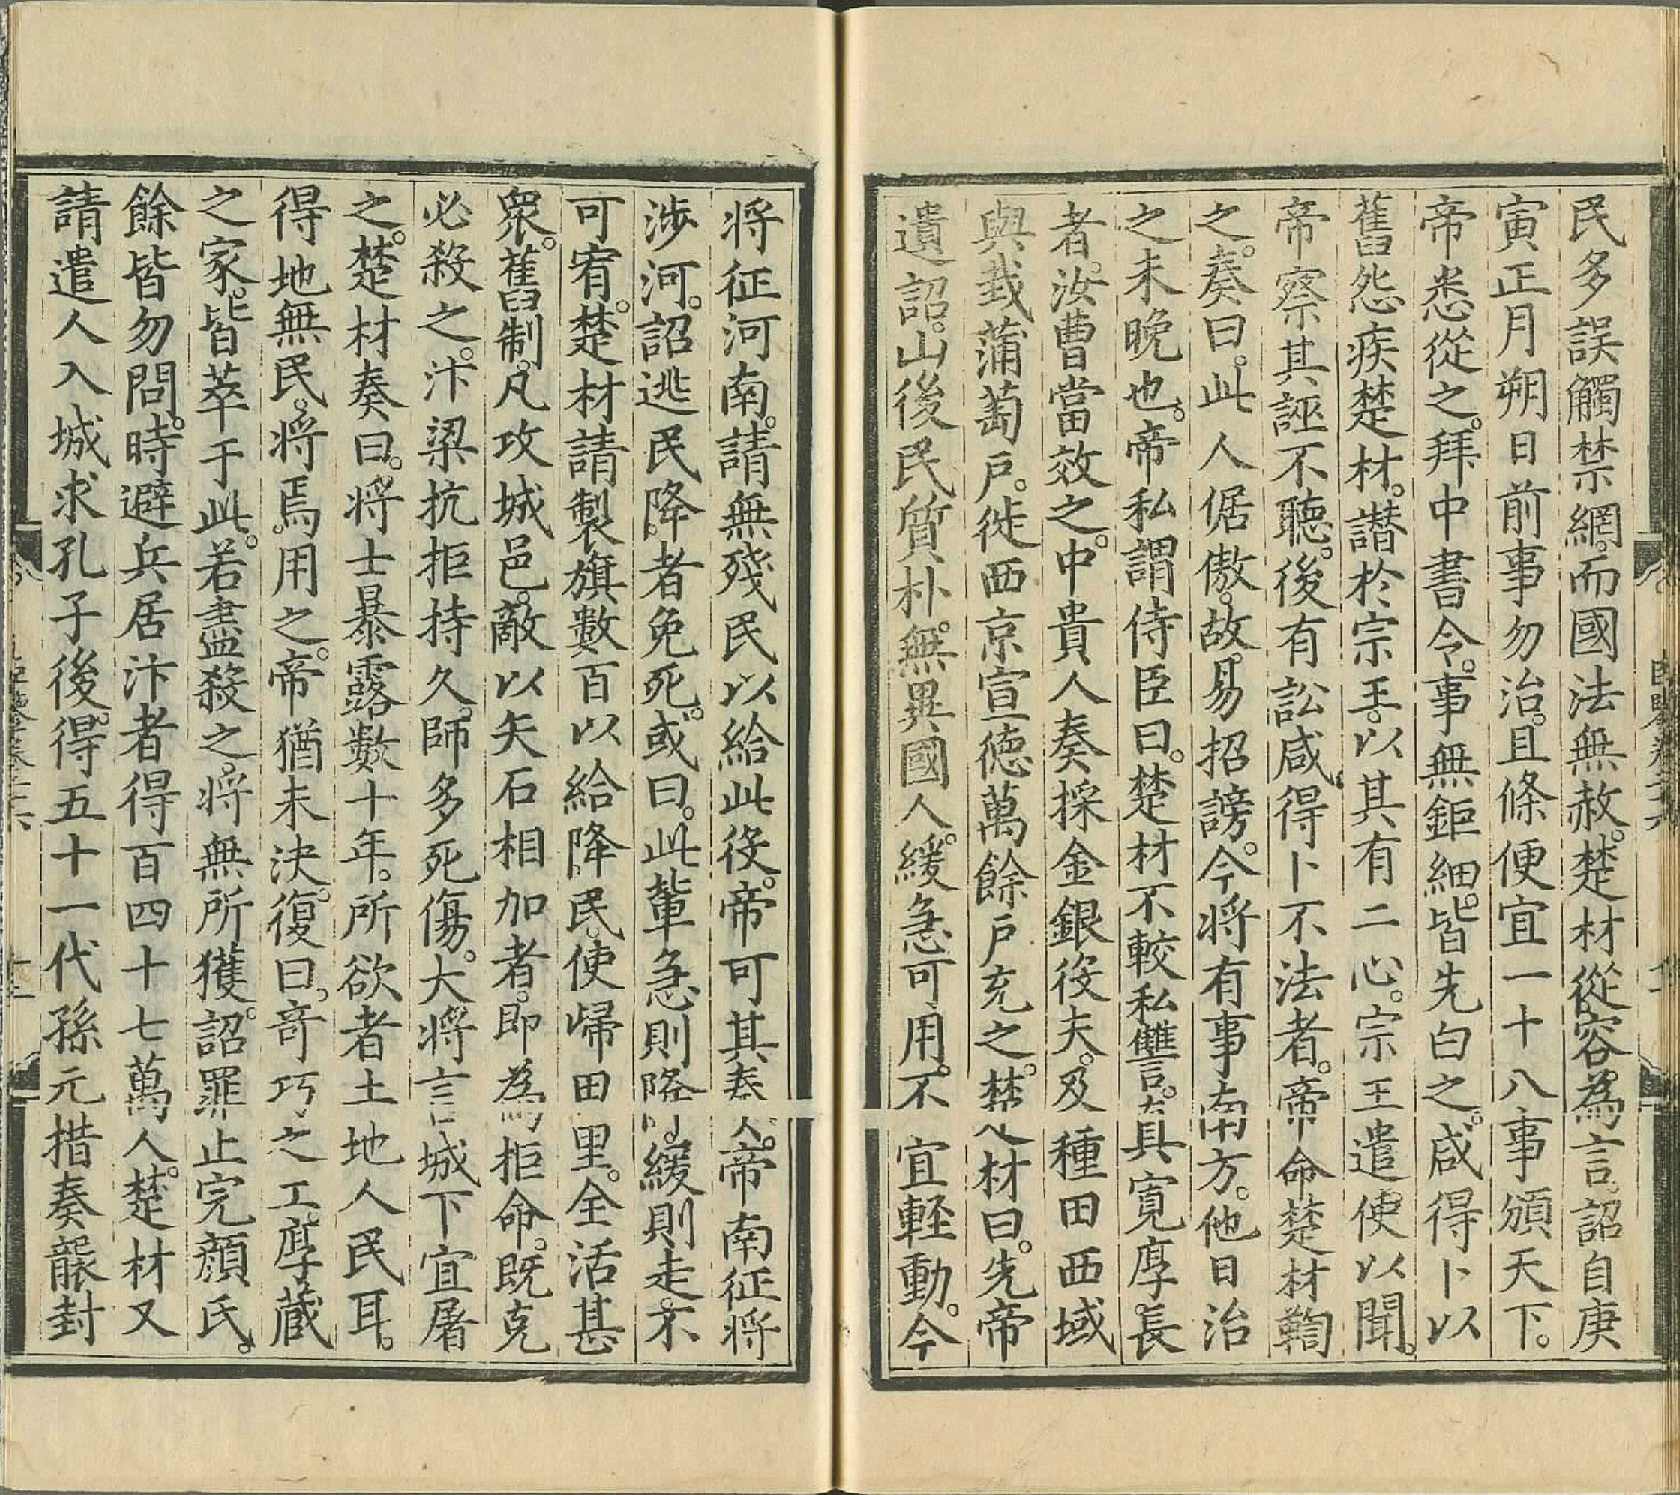 民多誤觸禁網。而國法無赦。楚材從容。為言。詔自庚
寅正月朔日前事勿治。且條便宜一十八事頒天下。
帝悉從之。拜中書令。事無鉅細。皆先白之。咸得卜以
舊怨疾楚材。譖於宗王。以其有二心。宗王遣使以聞。
帝察其誣不聽。後有訟咸得卜不法者。帝命楚材鞫
之。奏曰。此人倨傲。故易招謗。今將有事南方。他日治
之未晚也。帝私謂侍臣曰。楚材不較私讐。真寬厚長
者。汝曹當效之。中貴人奏採金銀役夫。及種田西域
與栽蒲萄戶。徙西京宣德萬餘戶充之。楚材曰。先帝
遺詔。山後民質朴。無異國人。緩急可用。不宜輕動。今
將征河南。請無殘民以給此役。帝可其奏。帝南征將
涉河。詔逃民降者免死。或曰。此輩急則降。緩則走。不
可宥。楚材請製旗數百以給降民。使歸田里。全活甚
衆。舊制。凡攻城邑。敵以矢石相加者。即為拒命。既克
必殺之。汴梁抗拒持久。師多死傷。大將言城下宜屠
之。楚材奏曰。將士暴露數十年。所欲者土地人民耳。
得地無民。將焉用之。帝猶未決。復曰。竒巧之工。厚藏
之家。皆萃于此。若盡殺之。將無所獲。詔罪止完顏氏。
餘皆勿問。時避兵居汴者得百四十七萬人。楚材又
請遣人入城求孔子後。得五十一代孫元措奏襲封